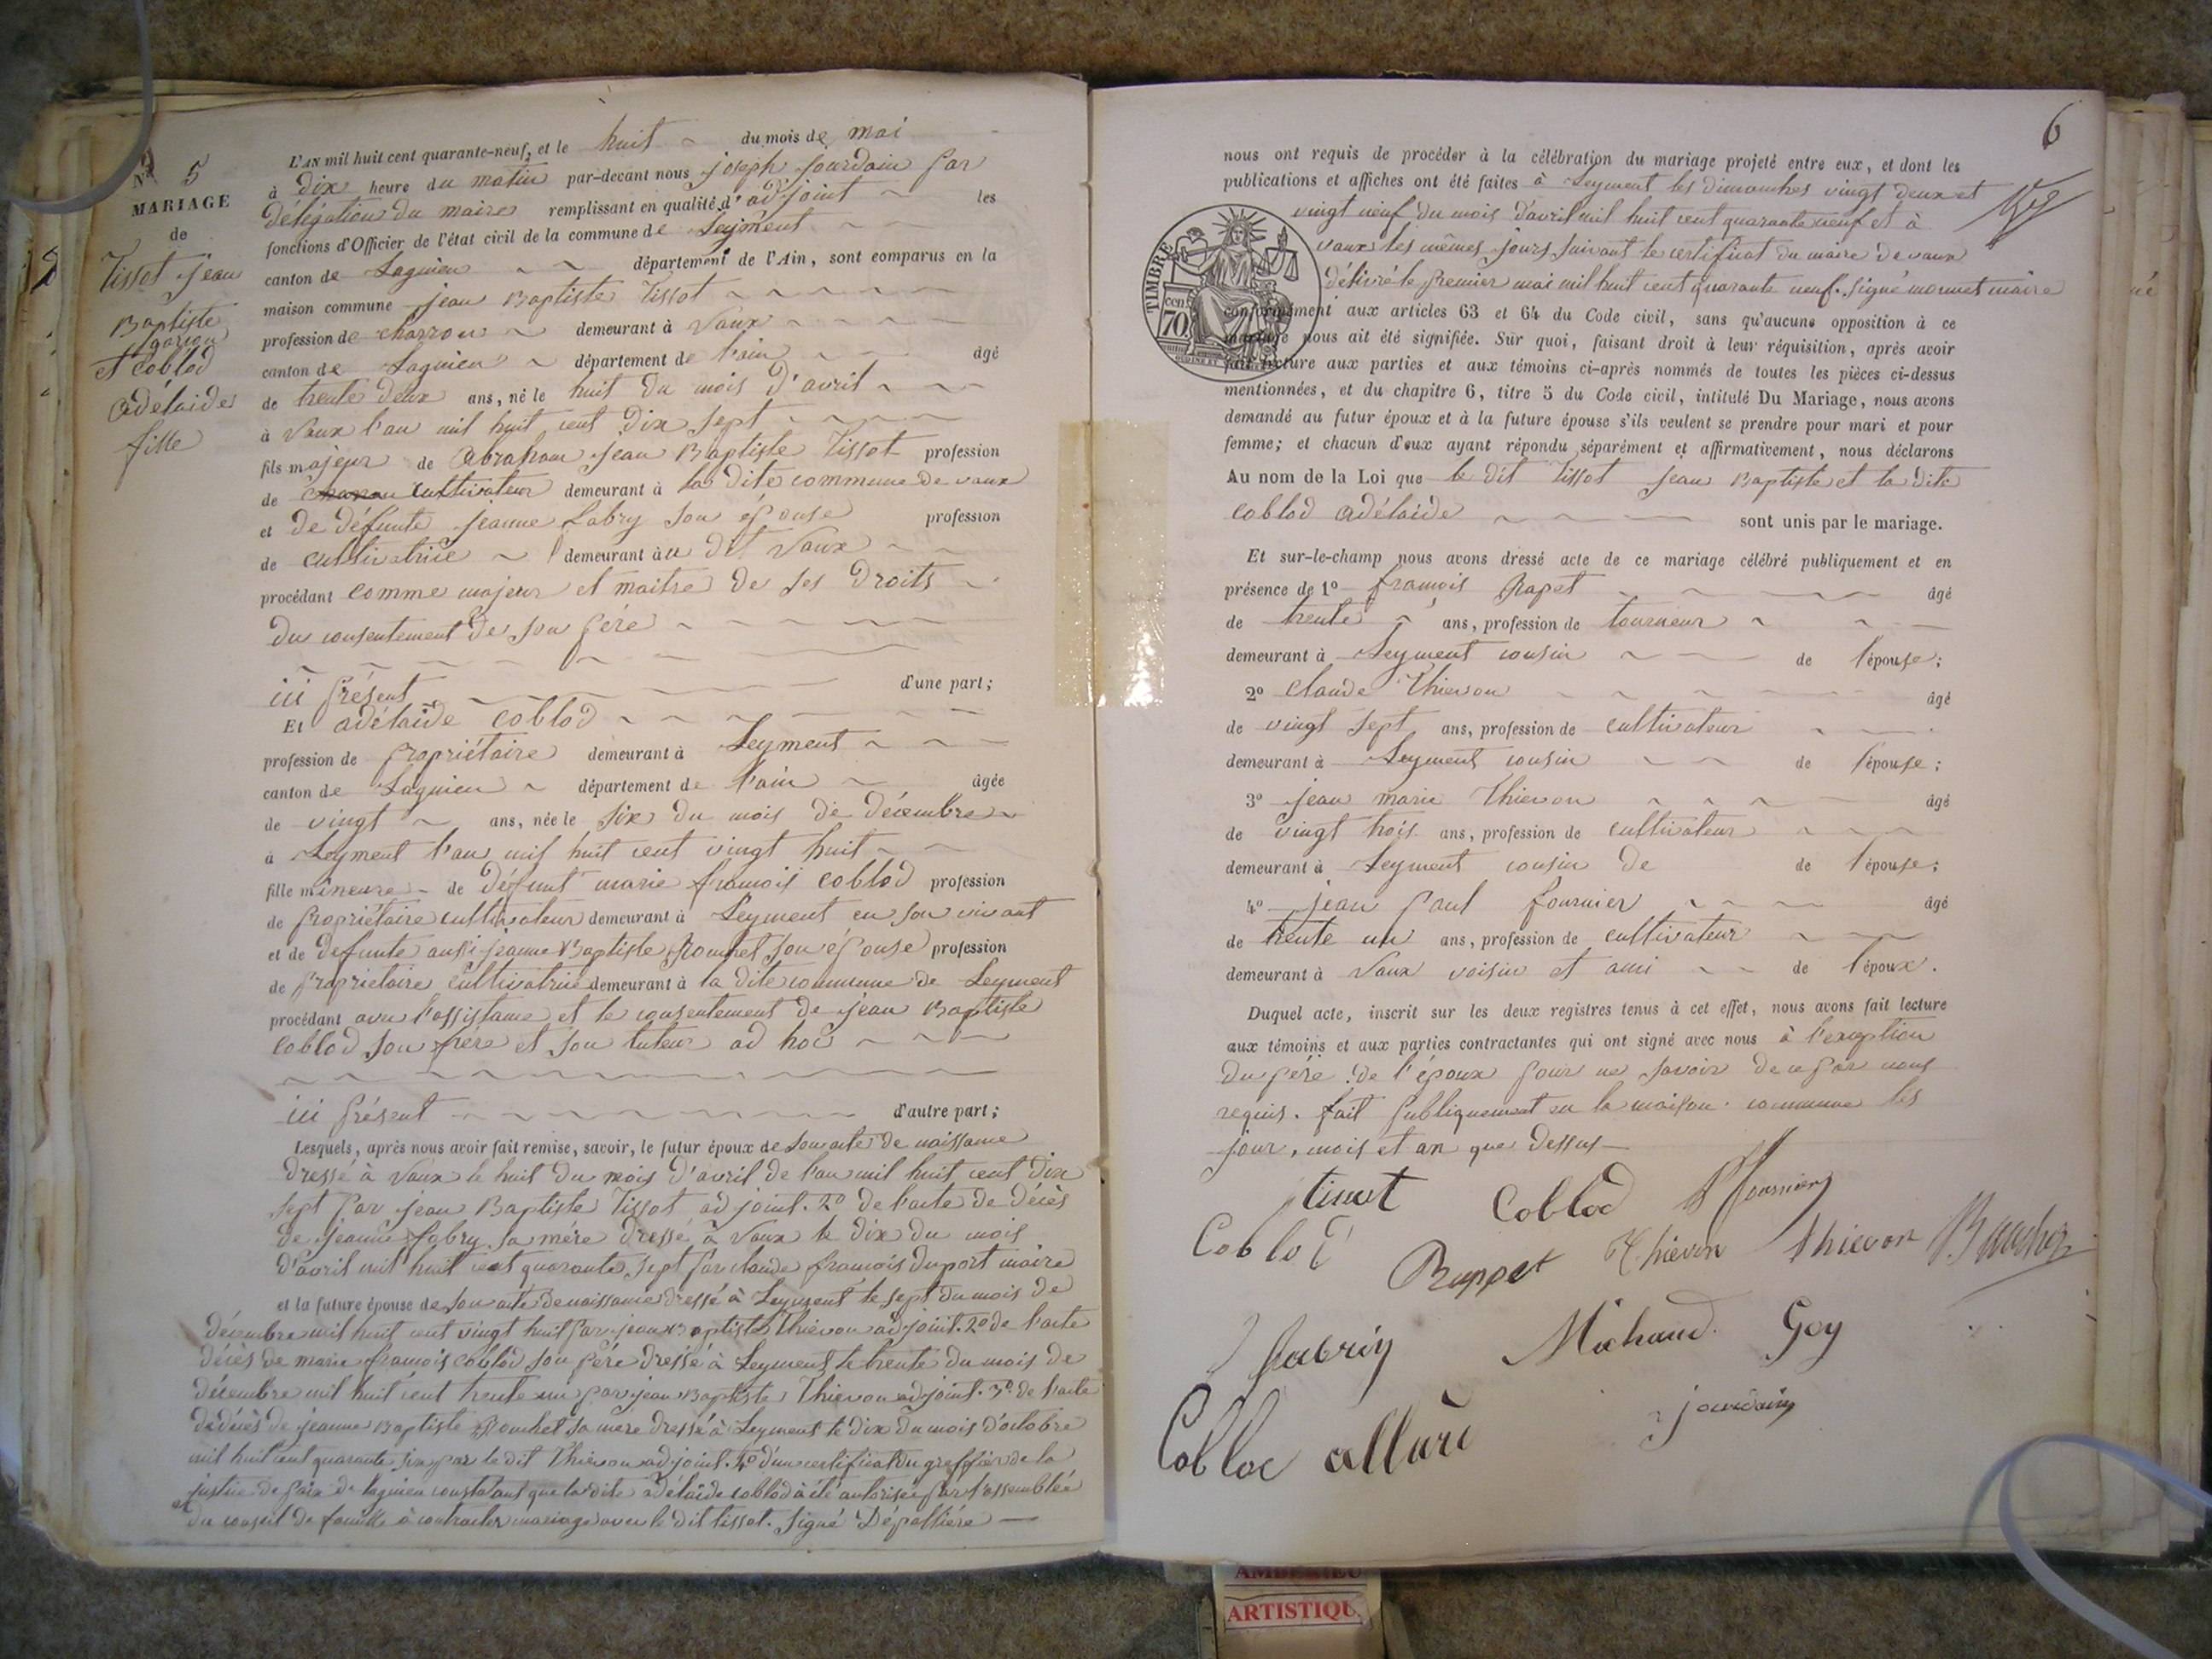 N° 5
MARIAGE
de
Tissot jean
Baptiste
garçon
et Coblod
adélaide
fille
L'AN mil huit cent quarante-neuf, et le huit du mois de mai
à dix heure du matin par-devant nous joseph jourdain par
délégation du maire remplissant en qualité d'adjoint les
fonctions d'Officier de l'état civil de la commune de Leyment
canton de Lagnieu département de l'Ain, sont comparus en la
maison commune jean Baptiste Tissot
profession de charron demeurant à Vaux
canton de Lagnieu département de l'ain âgé
de trente deux ans, né le huit du mois d'avril
à Vaux l'an mil huit cent dix sept
fils majeur de Abraham jean Baptiste Tissot profession
de cultivateur demeurant à la dite commune de vaux
et de défunte jeanne fabry son épouse profession
de cultivatrice demeurant au dit Vaux
procédant comme majeur et maitre de ses droits
du consentement de son père
ici présent d'une part;
Et adélaïde coblod
profession de propriétaire demeurant à Leyment
canton de Lagnieu département de l'ain âgée
de vingt ans, née le six du mois de décembre
à Leyment l'an mil huit cent vingt huit
fille mineure de défunt marie françois coblod profession
de propriétaire cultivateur demeurant à Leyment en son vivant
et de defunte aussi jeanne Baptiste son épouse profession
de propriétaire cultivatrice demeurant à la dite commune de Leyment
procédant avec l'assistance et le consentement de jean Baptiste
coblod son frère et son tuteur ad hoc
ici présent d'autre part;
Lesquels, après nous avoir fait remise, savoir, le futur époux de son acte de naissance
dressé à Vaux le huit du mois d'avril de l'an mil huit cent dix
sept par jean Baptiste Tissot adjoint. 2° de l'acte de décès
de jeanne fabry sa mère dressé à Vaux le dix du mois
d'avril mil huit cent quarante sept par claude françois duport maire
et la future épouse de son acte de naissance dressé à Leyment le sept du mois de
décembre mil huit cent vingt huit par jean Baptiste Thievon adjoint. 2° de l'acte
décès de marie françois coblod son père dressé à Leyment le trente du mois de
décembre mil huit cent trente un par jean Baptiste Thievon adjoint. 3° de l'acte
de décès de jeanne Baptiste sa mère dressé à Leyment le dix du mois d'octobre
mil huit cent quarante six par le dit Thievon adjoint. 4° d'un certificat du greffier de la
justice de paix de lagnieu constatant que la dite adélaide coblod à été autorisée par l'assemblée
du conseil de famille à contracter mariage avec le dit tissot. signé Dépallière
6
nous ont requis de procéder à la célébration du mariage projeté entre eux, et dont les
publications et affiches ont été faites à Leyment les dimanches vingt deux et
vingt neuf du mois d'avril mil huit cent quarante neuf et à
vaux les mêmes jours suivant le certificat du maire de vaux
délivré le premier mai mil huit cent quarante neuf. signé monnet maire
TIMBRE
cen.
70
conformément aux articles 63 et 64 du Code civil, sans qu'aucune opposition à ce
mariage nous ait été signifiée. Sur quoi, faisant droit à leur réquisition, après avoir
fait lecture aux parties et aux témoins ci-après nommés de toutes les pièces ci-dessus
mentionnées, et du chapitre 6, titre 5 du Code civil, intitulé Du Mariage, nous avons
demandé au futur époux et à la future épouse s'ils veulent se prendre pour mari et pour
femme; et chacun d'eux ayant répondu séparément et affirmativement, nous déclarons
Au nom de la Loi que le dit Tissot jean Baptiste et la dite
coblod adélaide sont unis par le mariage.
Et sur-le-champ nous avons dressé acte de ce mariage célébré publiquement et en
présence de 1° françois Rapet âgé
de trente ans, profession de tourneur
demeurant à Leyment cousin de l'épouse;
2° claude Thievon âgé
de vingt sept ans, profession de cultivateur
demeurant à Leyment cousin de l'épouse;
3° jean marie Thievon âgé
de vingt trois ans, profession de cultivateur
demeurant à Leyment cousin de de l'épouse;
4° jean paul fournier âgé
de trente un ans, profession de cultivateur
demeurant à Vaux voisin et ami de l'époux.
Duquel acte, inscrit sur les deux registres tenus à cet effet, nous avons fait lecture
aux témoins et aux parties contractantes qui ont signé avec nous à l'exception
du père de l'époux pour ne savoir de ce par nous
requis. fait publiquement en la maison commune les
jour, mois et an que dessus
tissot Coblod fournier
Coblod Rappet Thievon thievon
Michaud Goy
jourdain
AMBERIEU
ARTISTIQU